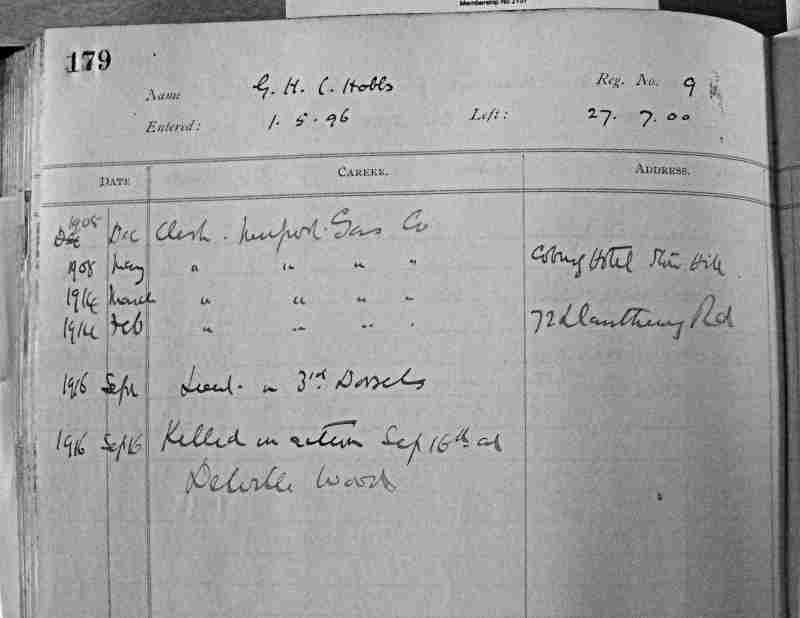 Membership No 2131
179
Name G. H. C. Hobbs Reg. No. 9
Entered: 1. 5. 96 Left: 27. 7. 00
DATE CAREER. ADDRESS.
1905 Dec Clerk. Newport Gas Co
1908 May " " " " Coburg Hotel Hill
1914 March " " " "
1914 Feb " " " " 72 Llanthewy Rd
1916 Sept Lieut. in 3rd Dorsets
1916 Sep 16 Killed in action Sep 16th at
Delville Wood